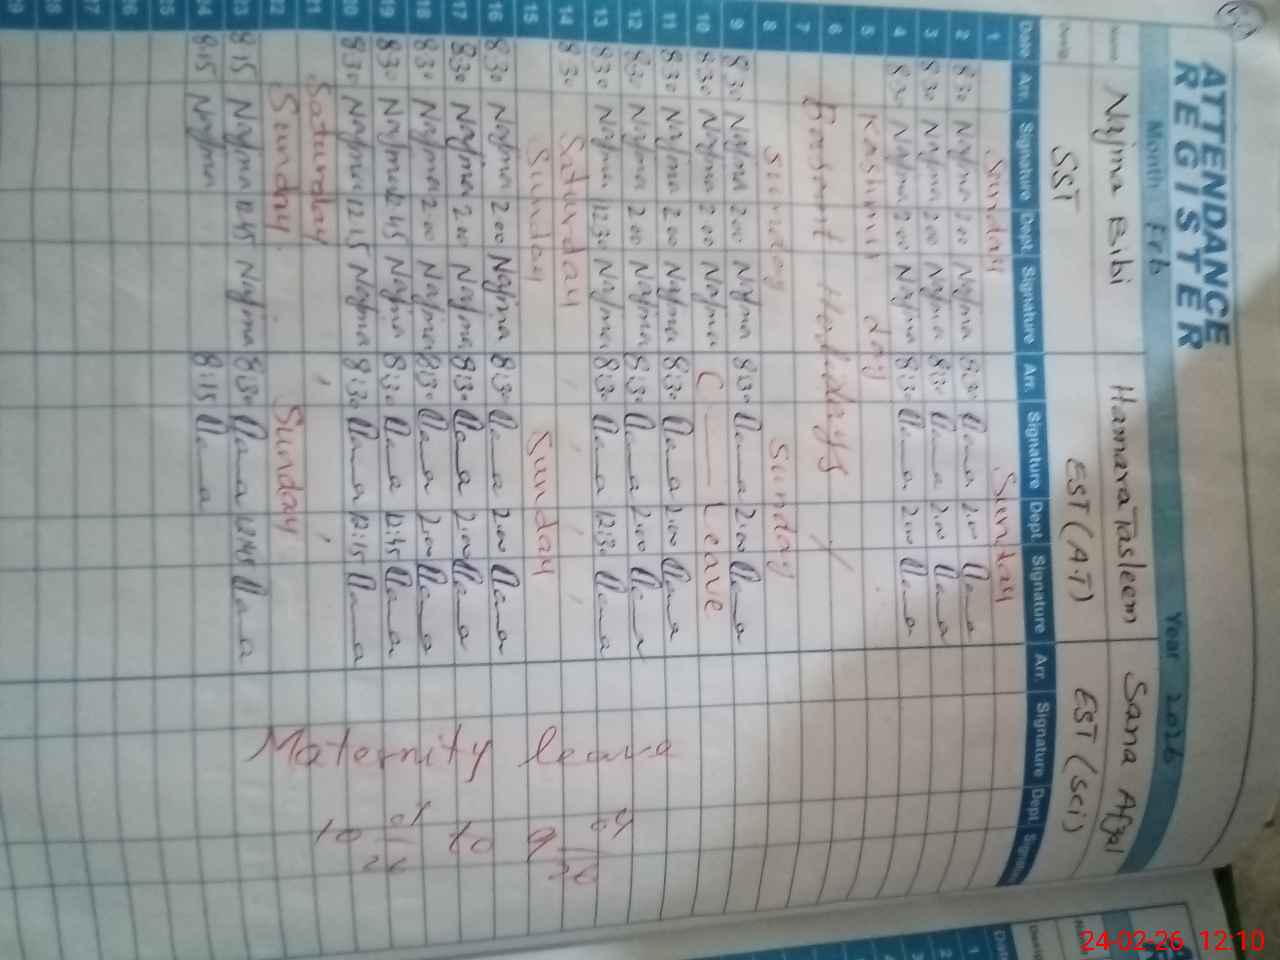 ATTENDANCE
REGISTER
Month Feb Year 2026
Najma Bibi Hamara Tasleem Sana Afzal
SST EST (A.T) EST (Sci)
Date Arr. Signature Dept. Signature Arr. Signature Dept. Signature Arr. Signature Dept. Signature
1 Sunday Sunday
2 8:30 Najma 2:00 Najma 8:30 2:00
3 8:30 Najma 2:00 Najma 8:30 2:00
4 8:30 Najma 2:00 Najma 8:30 2:00
5 Kashmir day
6 Basant Holidays
7
8 Sunday Sunday
9 8:30 Najma 2:00 Najma 8:30 2:00
10 8:30 Najma 2:00 Najma C Leave
11 8:30 Najma 2:00 Najma 8:30 2:00
12 8:30 Najma 2:00 Najma 8:30 2:00
13 8:30 Najma 12:30 Najma 8:30 12:30
14 8:30 Saturday
15 Sunday Sunday
16 8:30 Najma 2:00 Najma 8:30 2:00
17 8:30 Najma 2:00 Najma 8:30 2:00
18 8:30 Najma 2:00 Najma 8:30 2:00
19 8:30 Najma 12:45 Najma 8:30 12:45
20 8:30 Najma 12:15 Najma 8:30 12:15
21 Saturday
22 Sunday Sunday
23 8:15 Najma 12:45 Najma 8:30 12:45
24 8:15 Najma 8:15
25
26
27
28
29
Maternity leave
24-02-26 12:10